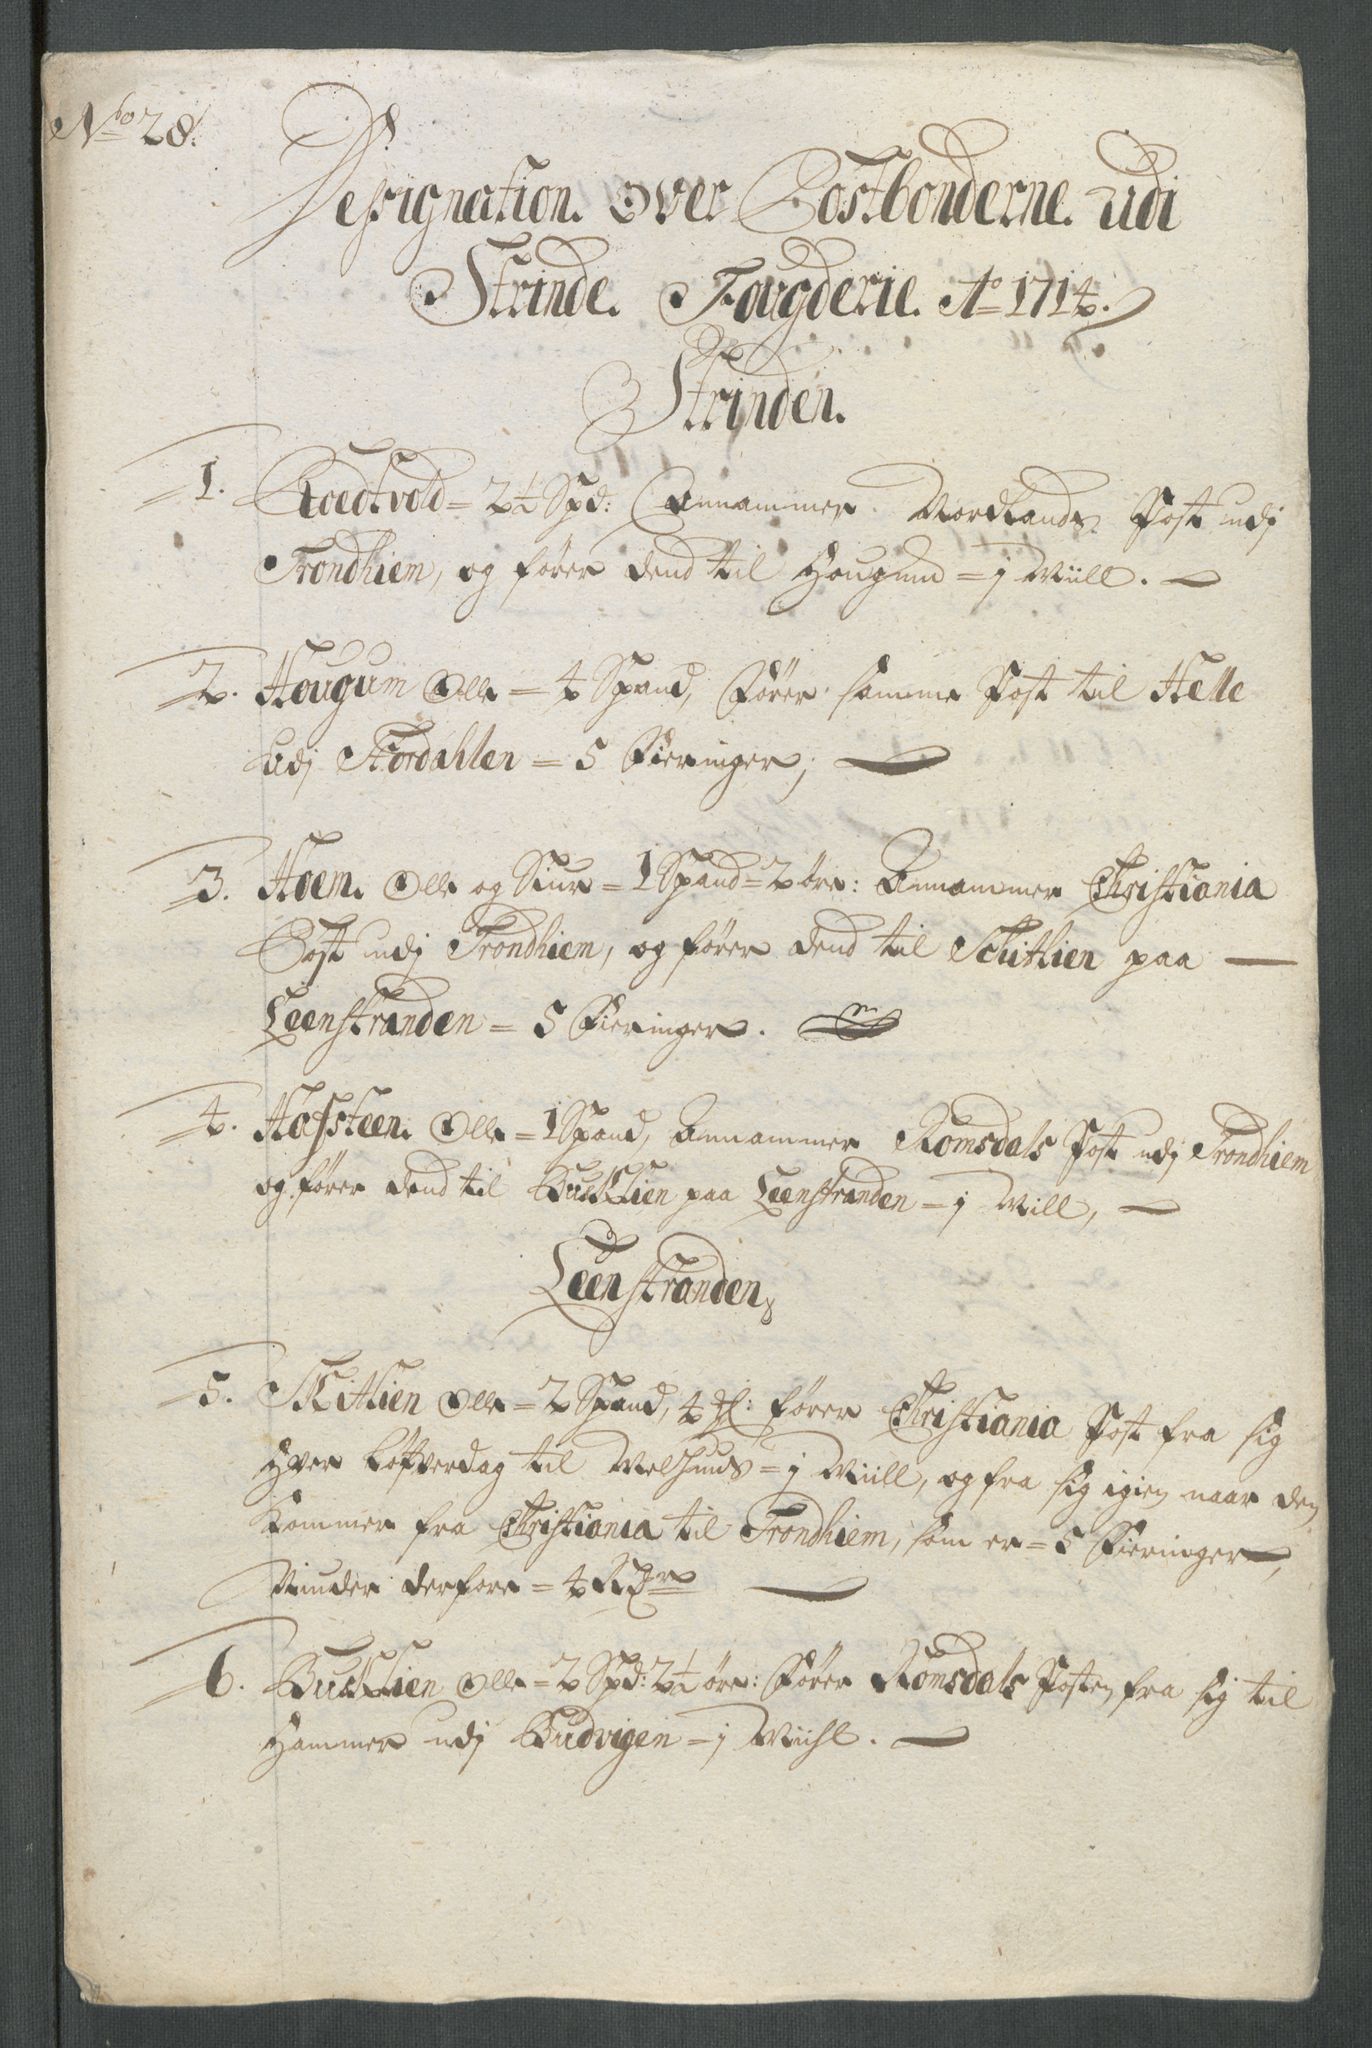 No 28.
Designation. Over Postbønderne. udi
Strinde. Fougderie. Ao 1714.
Strinden.
1. Roedtvold = 2½ Spd: Annammer Nordlands Post udj
Trondhiem, og fører dend til Hougum = j Miill.
2. Hougum Olle = 4 Spand, Fører samme Post til Helle
Udj Størdahlen = 5 Fieringer;
3. Hoem. Olle og Siur = 1 Spand = 2 øre: Annammer Christiania
Post udj Trondhiem, og fører dend til Schitlien paa
Leenstranden = 5 Fieringer.
4. Hafsteen. Olle = 1 Spand, Annammer Romsdals Post udj Trondhiem
og fører dend til Buslien paa Leenstranden = j Mill,
Leenstranden
5. Skitlien Olle = 2 Spand, 4 fører Christiania Post fra sig
Hver Løfverdag til Melhuus = j Miill, og fra sig igien naar den
Kommer fra Christiania til Trondhiem, som er = 5 Fieringer,
Niuder derfore = 4 Rdr
6. Buslien Olle = 2 Spd: 2½ øre: Fører Romsdals Posten fra sig til
Hammer udj Budvigen = j Miihl.